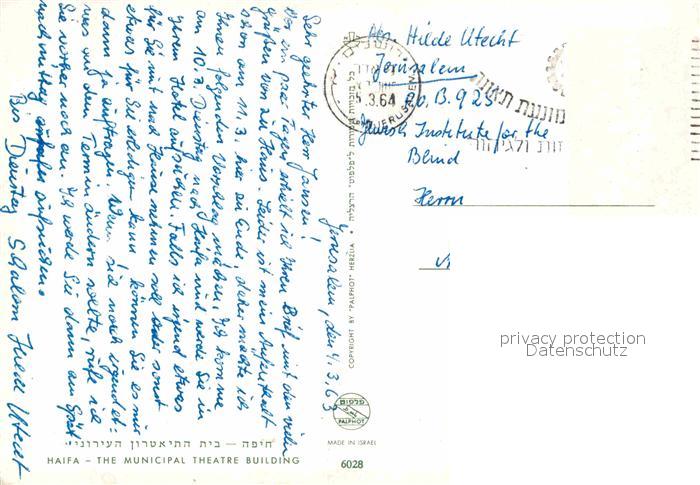 Abs. Hilde Utecht
Jerusalem
P.O.B. 925
Jewish Institute for the
Blind
Herrn
JERUSALEM
5.3.64
privacy protection
Datenschutz
Jerusalem, den 4.3.63
Sehr geehrter Herr Janssen!
Vor ein paar Tagen erhielt ich Ihren Brief mit den vielen
Grüßen von zu Haus. Leider ist mein Aufenthalt
schon am 11.3. hier zu Ende, daher möchte ich
Ihnen folgenden Vorschlag machen. Ich komme
am 10.3. Dienstag nach Haifa und werde Sie in
Ihrem Hotel aufsuchen. Falls ich irgend etwas
für Sie mit nach Hause nehmen soll oder sonst
etwas für Sie erledigen kann, können Sie es mir
dann ja auftragen. Wenn sich noch irgendet-
was an dem Termin ändern sollte, rufe ich
Sie vorher noch an. Ich werde Sie dann am Spät
nachmittag aufsuchen.
Bis Dienstag Schalom Hilde Utecht
COPYRIGHT BY "PALPHOT" HERZLIA • כל הזכויות שמורות לפלפוט הרצליה
פלפוט
PALPHOT
MADE IN ISRAEL
חיפה – בית התיאטרון העירוני
HAIFA – THE MUNICIPAL THEATRE BUILDING
6028